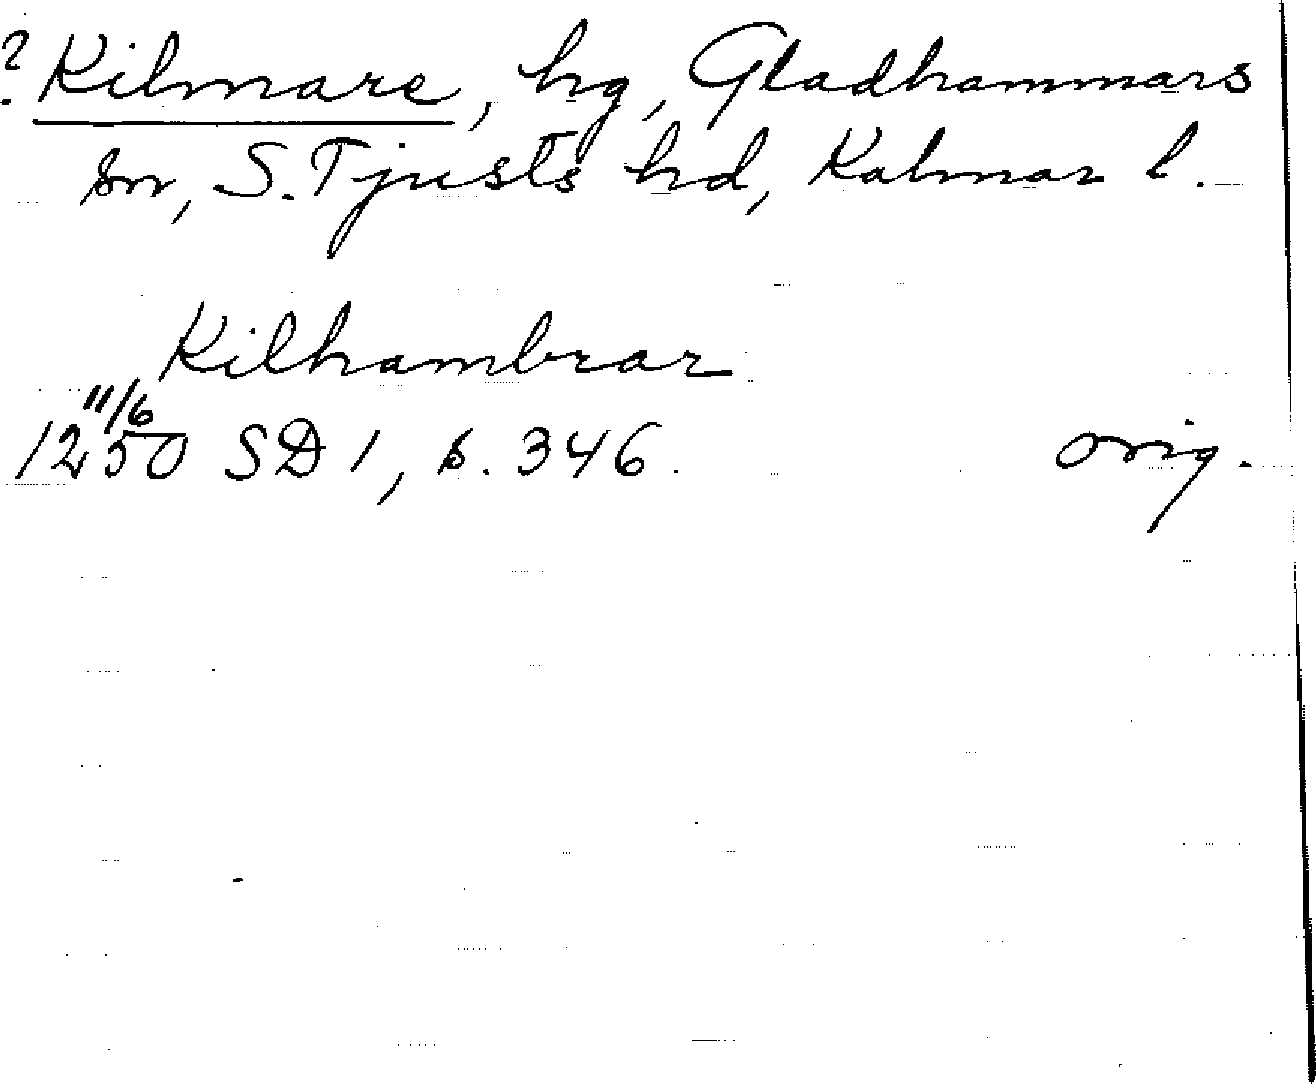 ? Kilmare, hg, Gladhammars
sn, S. Tjusts hd, Kalmar l.
Kilhambrar
11/6
1250 SD 1, s. 346. orig.